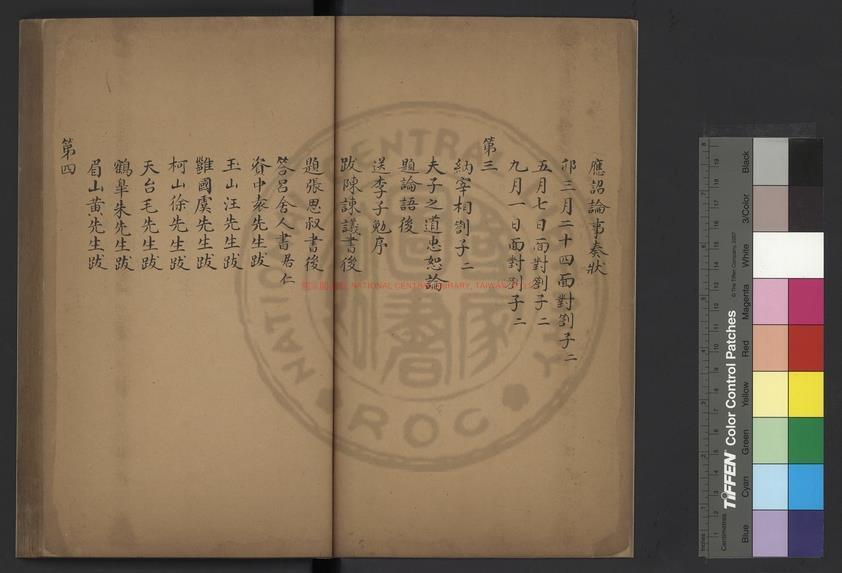 應詔論事奏狀
卯三月二十四面對劄子二
五月七日面對劄子二
九月一日面對劄子二
第三
納宰相劄子二
夫子之道忠恕論
題論語後
送李子勉序
跋陳諫議書後
題張思叔書後
答呂舍人書居仁
資中家先生跋
玉山汪先生跋
雝國虞先生跋
柯山徐先生跋
天台毛先生跋
鶴皐朱先生跋
眉山黄先生跋
第四
NATIONAL CENTRAL LIBRARY, TAIWAN
NATIONAL CENTRAL LIBRARY
ROC
TIFFEN Color Control Patches
© The Tiffen Company, 2007
Centimetres
Inches
Blue
Cyan
Green
Yellow
Red
Magenta
White
3/Color
Black